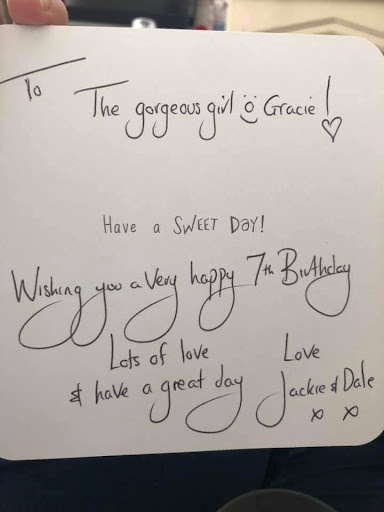 To
The gorgeous girl ☺ Gracie! ♡
Have a SWEET DAY!
Wishing you a Very happy 7th Birthday
Lots of love
& have a great day
Love
Jackie & Dale
x x